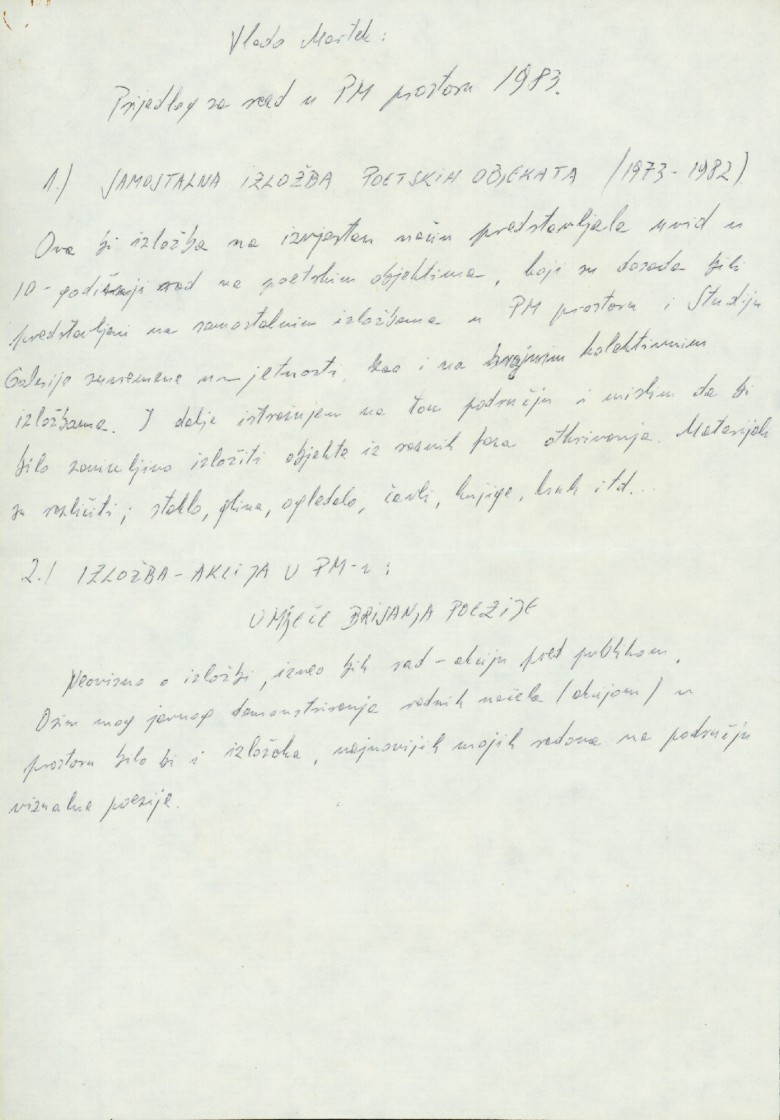 Vlado Martek:
Prijedlog za rad u PM prostoru 1983.
1.) SAMOSTALNA IZLOŽBA POETSKIH OBJEKATA (1973-1982)
Ova bi izložba na izvjestan način predstavljala uvid u
10-godišnji rad na poetskim objektima, koji su dosada bili
predstavljeni na samostalnim izložbama u PM prostoru i Studiju
Galerije suvremene umjetnosti, kao i na brojnim kolektivnim
izložbama. I dalje istražujem na tom području i mislim da bi
bilo zanimljivo izložiti objekte iz raznih faza otkrivanja. Materijali
su različiti; staklo, glina, ogledalo, čavli, knjige, kruh itd...
2.) IZLOŽBA-AKCIJA U PM-u:
UMIJEĆE BRISANJA POEZIJE
Neovisno o izložbi, izveo bih rad-akciju pred publikom.
Osim mog javnog demonstriranja radnih načela (akcijom) u
prostoru bilo bi i izložaka, najnovijih mojih radova na području
vizualne poezije.